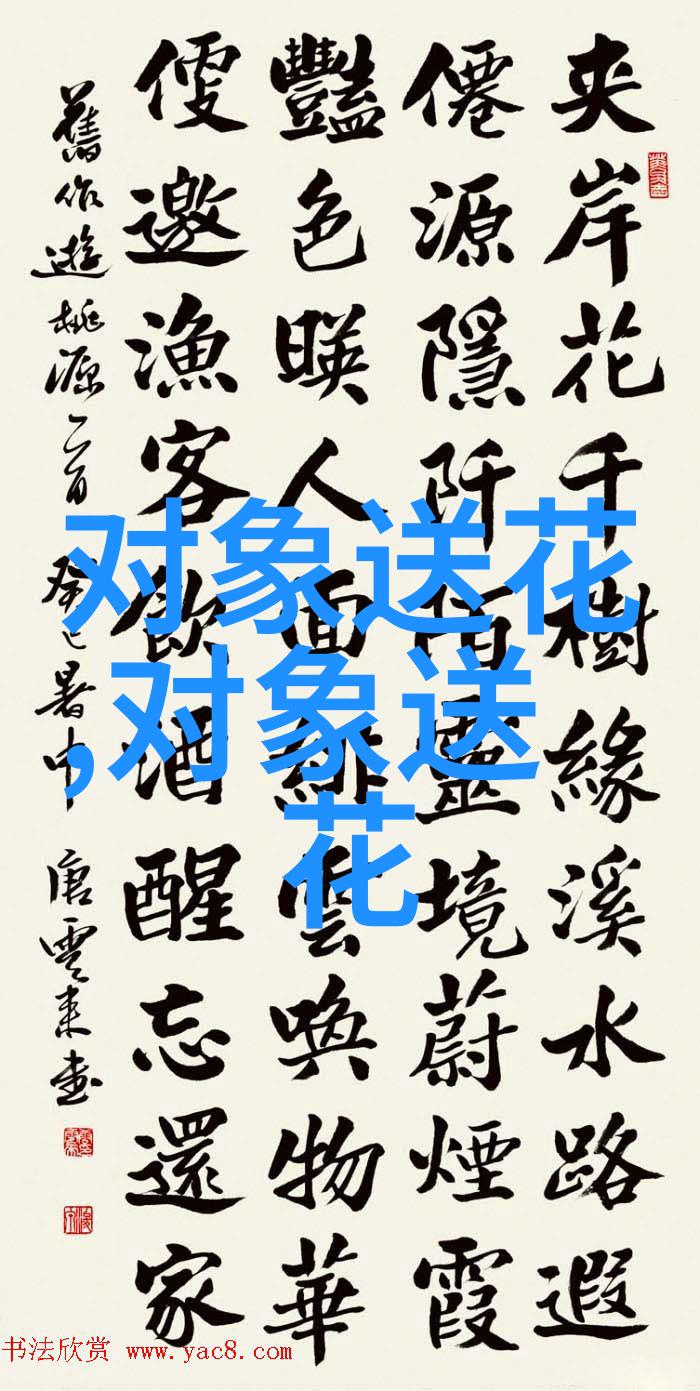 夹岸花千樹緣溪水路遐
僊源隱阡陌靈境蔚煙霞
豔色暎人面緋雲喚物華
便邀漁客飲酒醒忘還家
舊作遊桃源二首 癸巳暑中 唐雲来書
对象送花
,对象送
花
书法欣赏 www.yac8.com